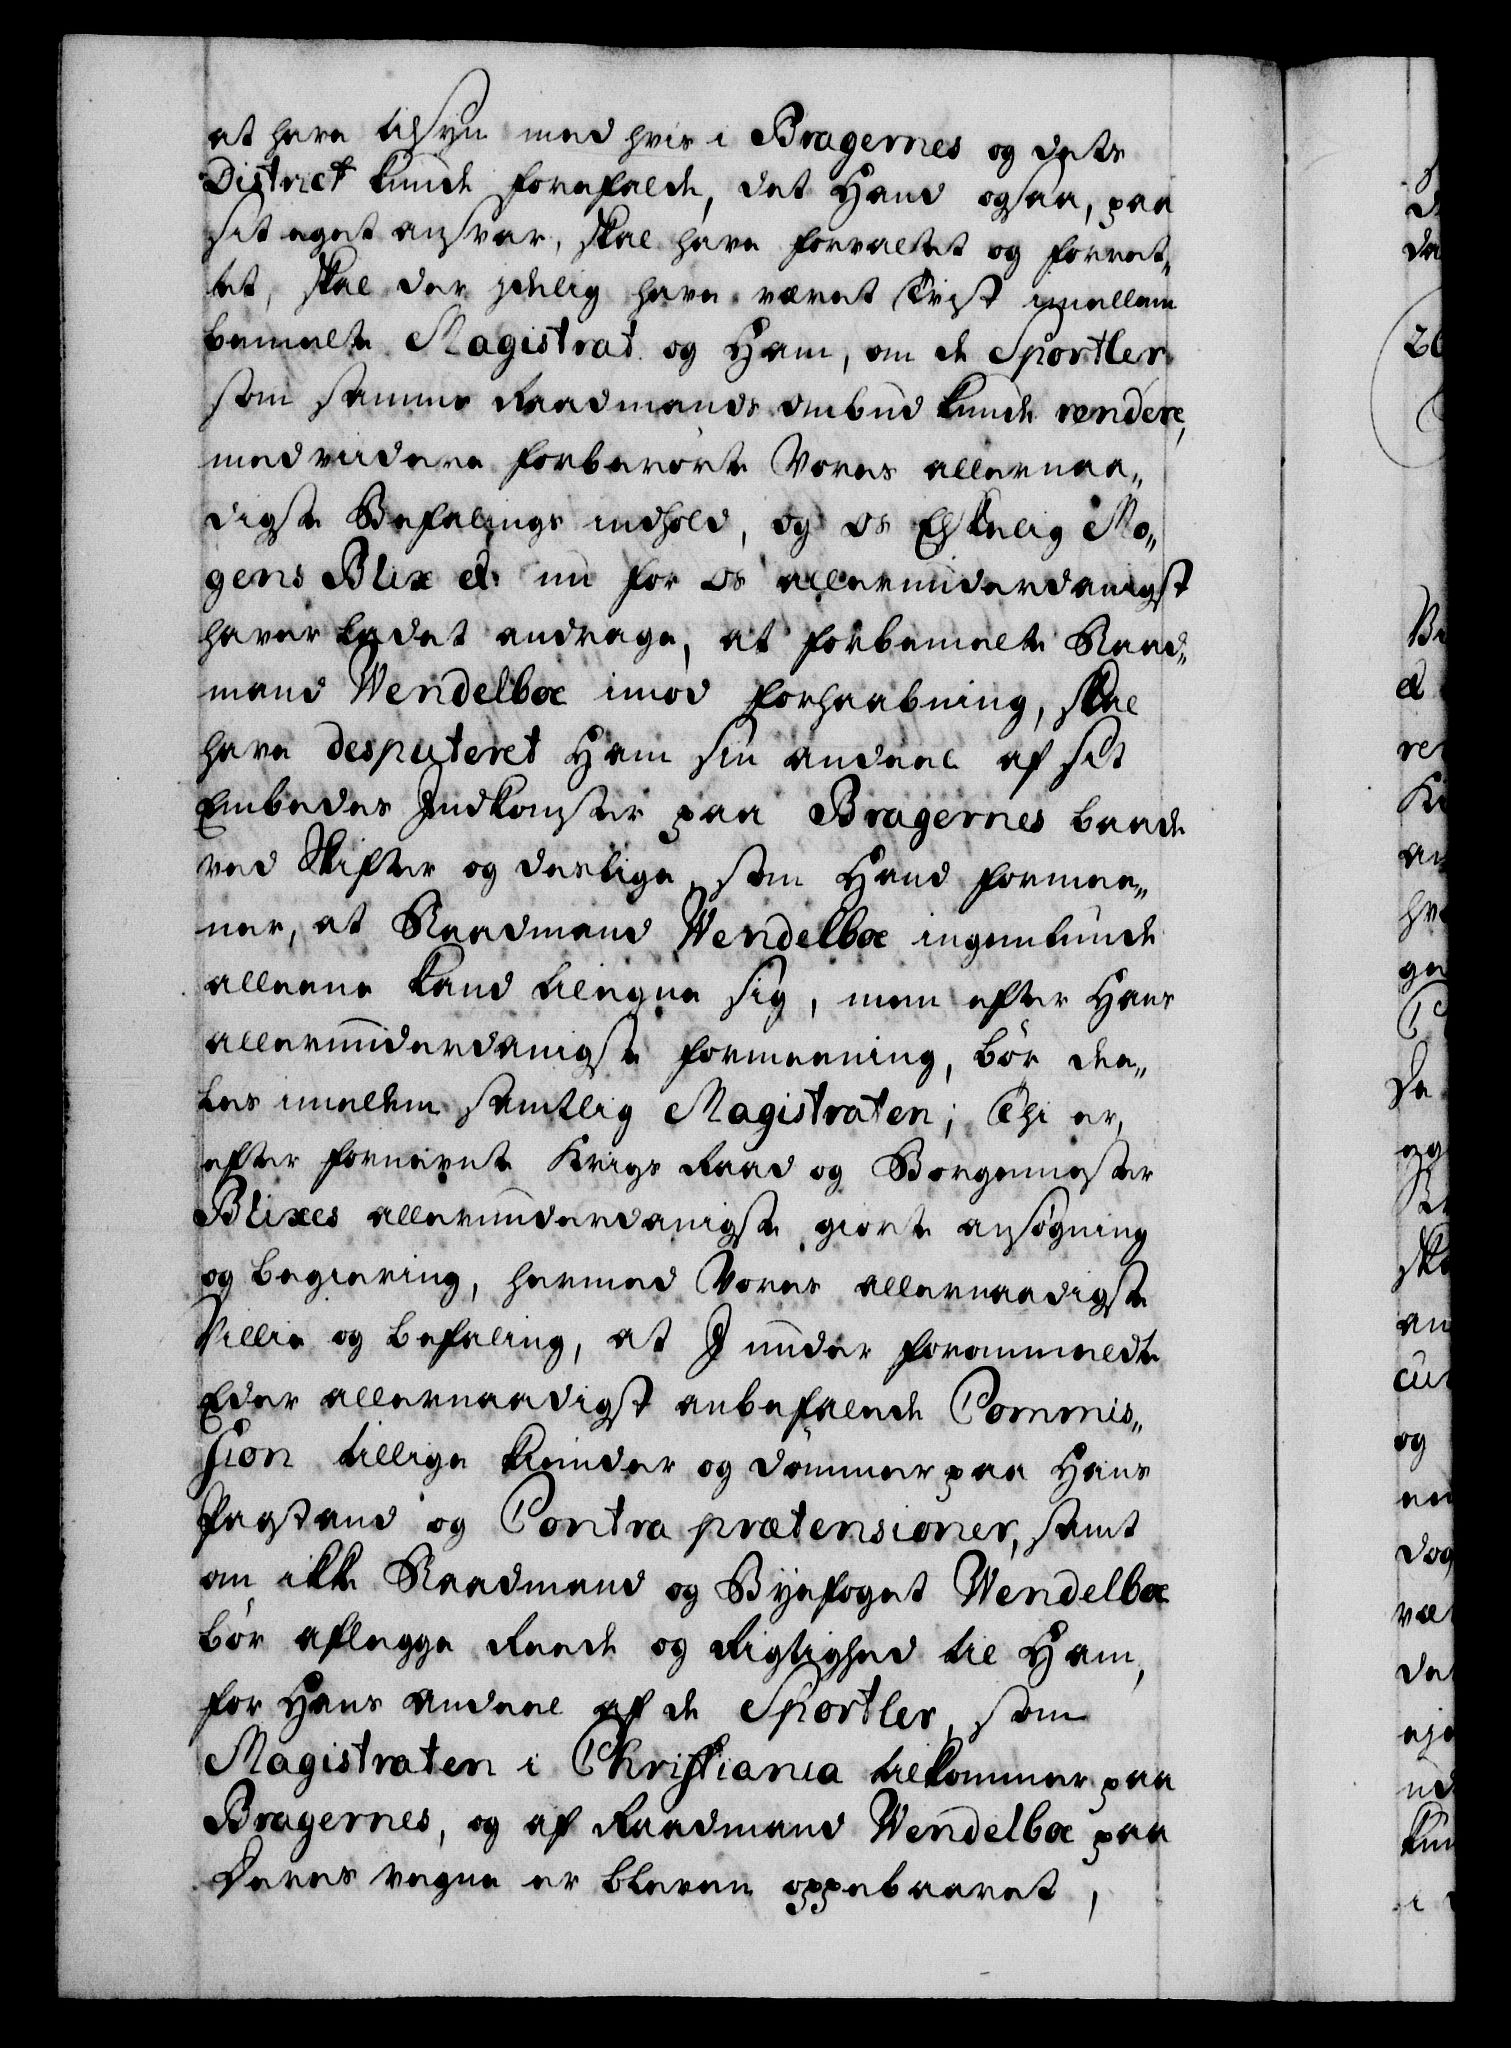 at have tilsyn med hvis i Bragernes og dets
District kunde forefalde, det Hand ogsaa, paa
sit eget ansvar, skal have forvaltet og forret„
tet, skal der jdelig have været Tvist imellem
bemelte Magistrat og Ham, om de Sportler
som samme Raadmands ombud kunde rendere,
med viidere forberørte Vores allernaa„
digste Befalings indhold, og os Elskelig Mo„
gens Blix &: nu for os allerunderdanigst
haver ladet andrage, at forbemelte Raad„
mand Wendelboe imod forhaabning, skal
have desputeret Ham sin andeel af sit
Embedes Indkomster paa Bragernes baade
ved Skifter og deslige, som Hand formee„
ner, at Raadmand Wendelboe ingenlunde
alleene kand tilegne sig, men efter Hans
allerunderdanigste formeening, bør dee„
les imellem samtlig Magistraten; Thi er,
efter fornevnte Krigs Raad og Borgemester
Blixes allerunderdanigste giorte ansøgning
og begiering, hermed Vores allernaadigste
Villie og befaling, at I under forommeldte
Eder allernaadigst anbefalede Commis„
sion tillige kiender og dømmer paa Hans
Paastand og Contra prætensioner, samt
om ikke Raadmand og Byefoget Wendelboe
bør aflegge Reede og Rigtighed til Ham,
for Hans andeel af de Sportler, som
Magistraten i Christiania tilkommer paa
Bragernes, og af Raadmand Wendelboe paa
Deres vegne er bleven oppebaaret,